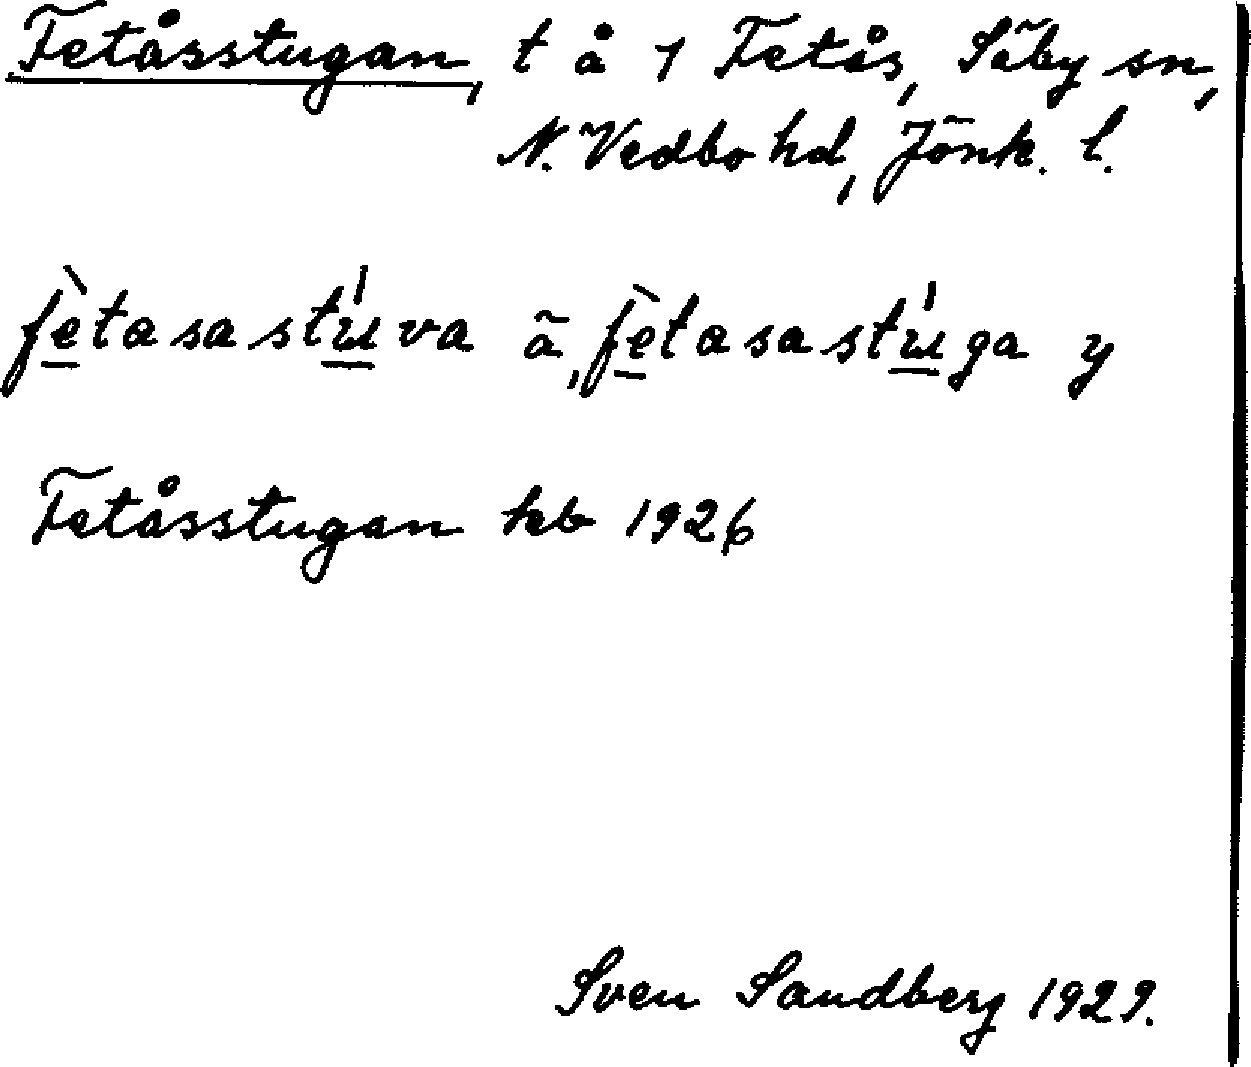 Fetåsstugan, t å 1 Fetås, Säby sn,
N. Vedbo hd, Jönk. l.
fètasastúva ä, fètasastúga y
Fetåsstugan kb 1926
Sven Sandberg 1929.